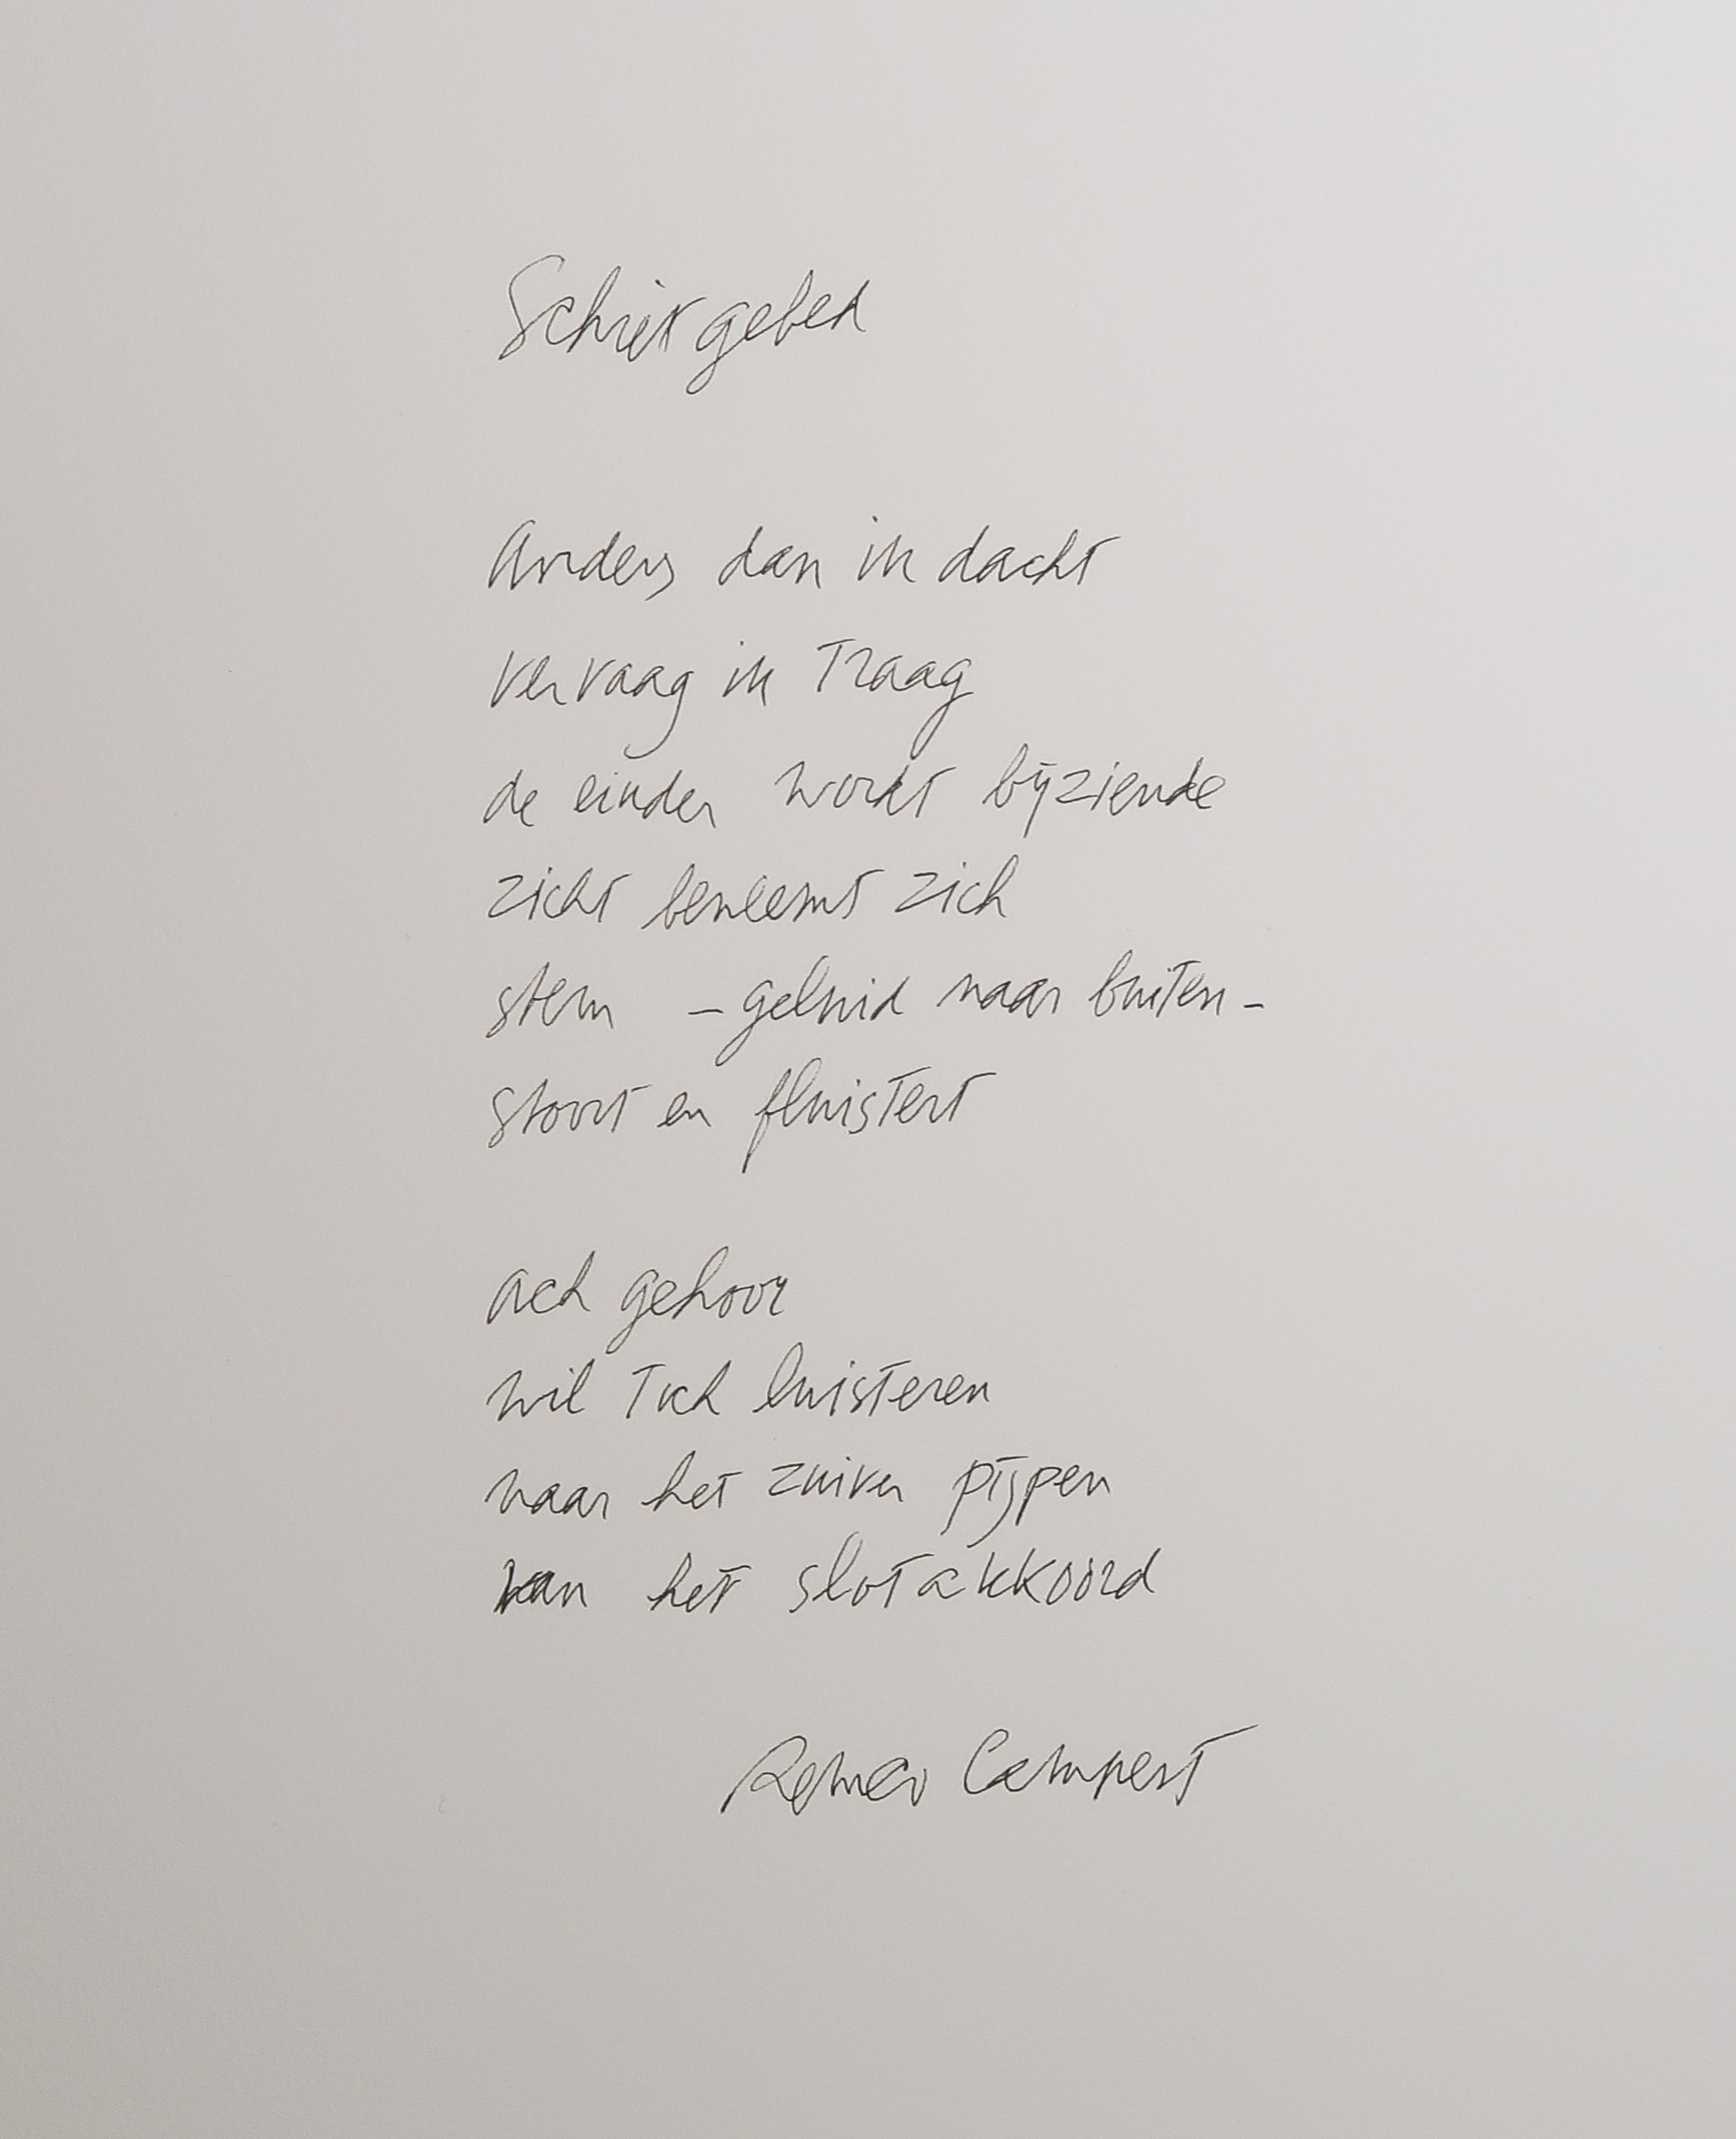 Schietgebed
Anders dan ik dacht
vervaag ik traag
de einder wordt bijziende
zicht beneemt zich
stem – geluid naar buiten –
stoort en fluistert
ach gehoor
wil toch luisteren
naar het zuiver pijpen
van het slotakkoord
Remco Campert